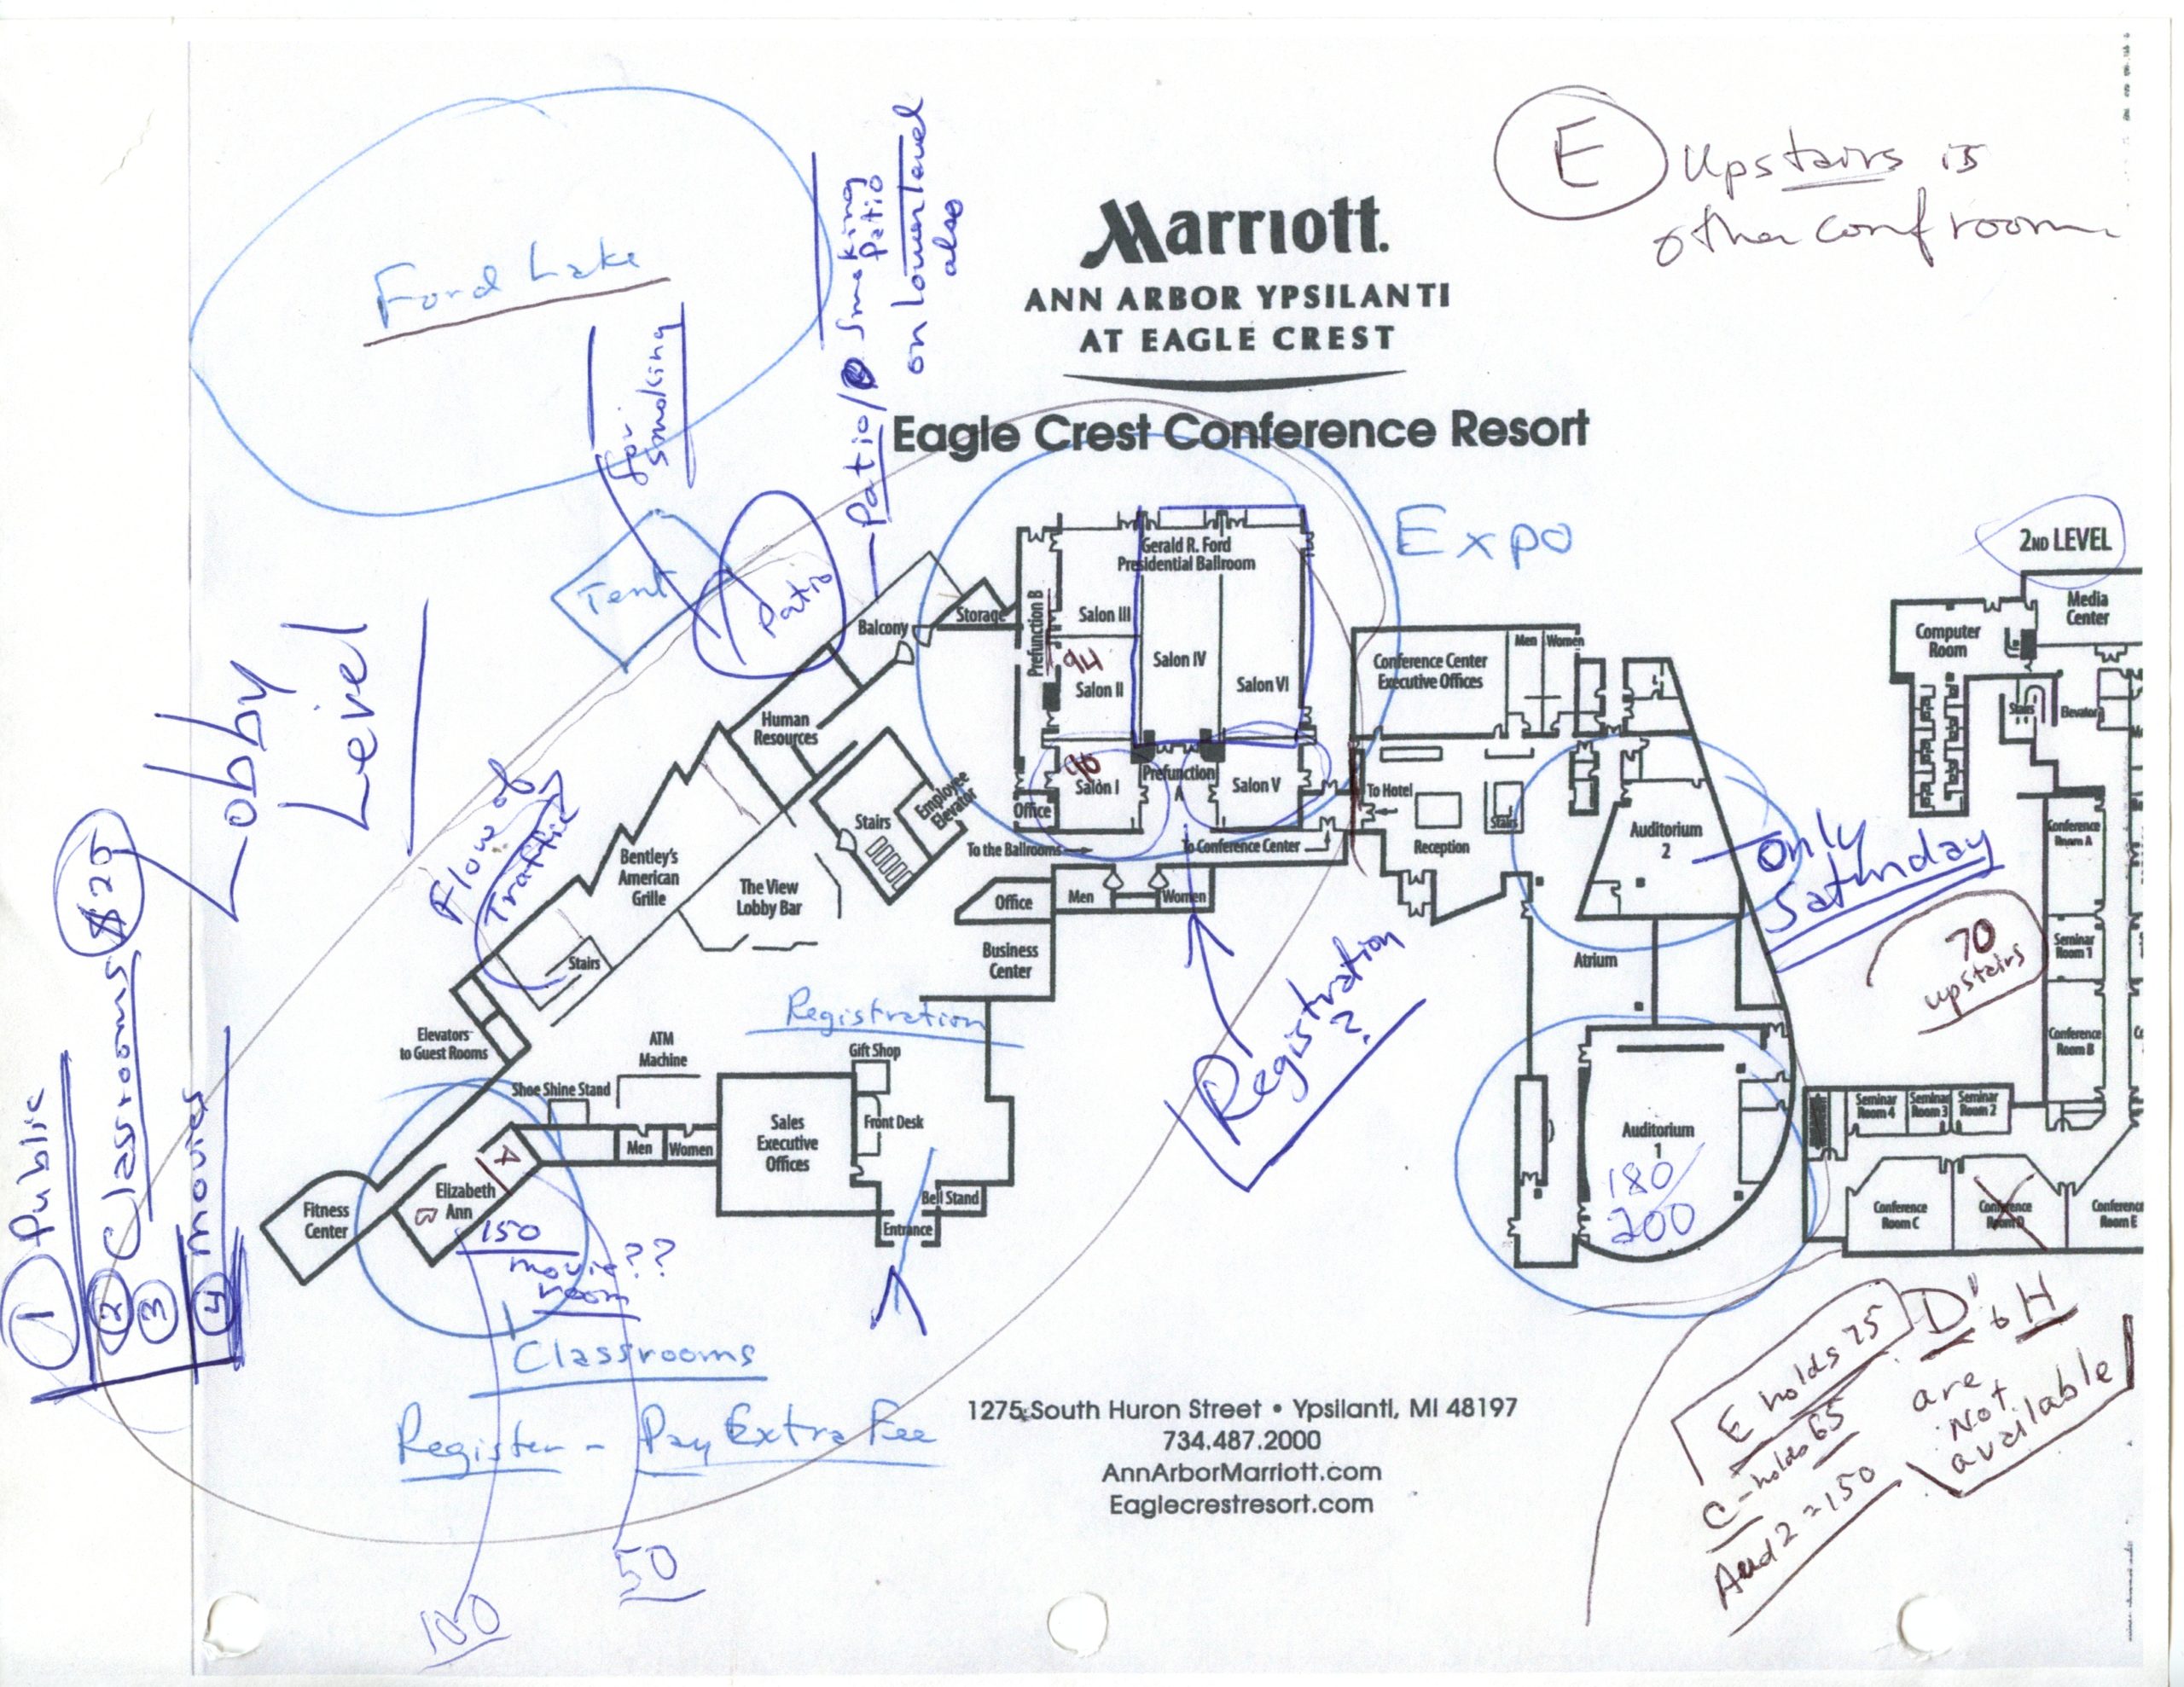 E
Upstairs is
other conf room
Ford Lake
for
smoking
Patio / Smoking
Patio
on lower level
also
Marriott.
ANN ARBOR YPSILANTI
AT EAGLE CREST
Eagle Crest Conference Resort
Expo
Tent
Patio
Lobby
Level
Flow of
Traffic
Balcony
Storage
Prefunction B
Gerald R. Ford
Presidential Ballroom
Salon III
94
Salon II
Salon IV
Salon VI
90
Salon I
Prefunction
A
Salon V
Office
To the Ballrooms
To Conference Center
Men
Women
Office
Business
Center
Human
Resources
Stairs
Employee
Elevator
Bentley's
American
Grille
The View
Lobby Bar
Stairs
Elevators
to Guest Rooms
Registration
Registration
?
ATM
Machine
Gift Shop
Shoe Shine Stand
Men
Women
Sales
Executive
Offices
Front Desk
Bell Stand
Entrance
Fitness
Center
Elizabeth
Ann
A
B
150
movie??
room
Classrooms
Register - Pay Extra Fee
100
50
1 Public
2 Classrooms $20
3
4 movies
Conference Center
Executive Offices
Men
Women
To Hotel
Stairs
Reception
Auditorium
2
Only
Saturday
Atrium
Auditorium
1
180
200
2ND LEVEL
Media
Center
Computer
Room
Stairs
Elevator
Conference
Room A
Seminar
Room 1
Conference
Room B
70
upstairs
Seminar
Room 4
Seminar
Room 3
Seminar
Room 2
Conference
Room C
Conference
Room D
Conference
Room E
E holds 75
C - holds 65
Aud 2 = 150
D to H
are
Not
available
1275 South Huron Street • Ypsilanti, MI 48197
734.487.2000
AnnArborMarriott.com
Eaglecrestresort.com